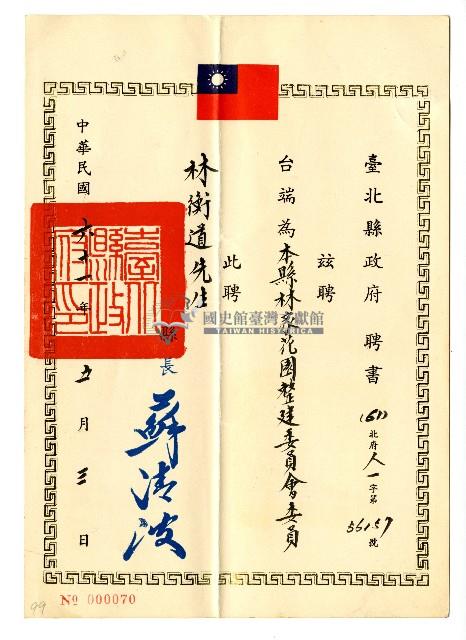 臺北縣政府 聘書 (61)北府人一字第56157號
玆聘
台端為本縣林家花園整建委員會委員
此聘
林衡道先生
縣長 蘇清波
中華民國 六十一年 五月 三日
臺北縣政府印
國史館臺灣文獻館
TAIWAN HISTORICA
№ 000070
99